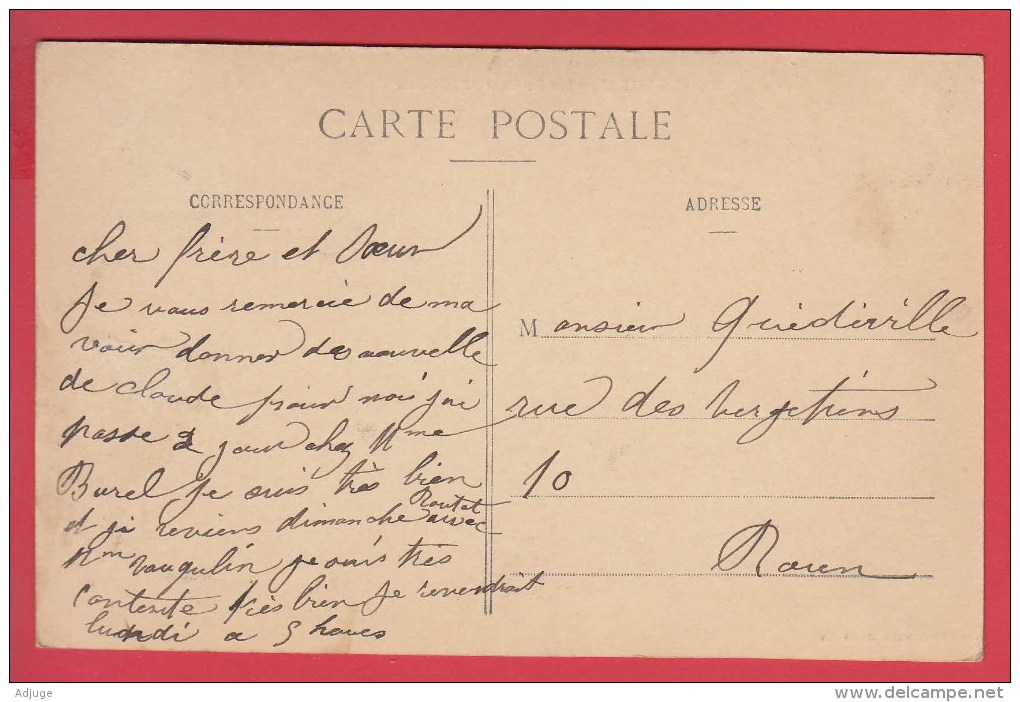 CARTE POSTALE
CORRESPONDANCE
cher frère et Sœur
Je vous remercie de ma
voir donner des nouvelle
de claude pour moi j'ai
passe 2 jour chez Mme
Burel je suis très bien
et ji reviens dimanche avec
Mm Vauquelin je suis très
contente très bien Je revendrait
lundi a 5 houres
ADRESSE
Monsieur
rue des
10
Rouen
Adjuge
www.delcampe.net